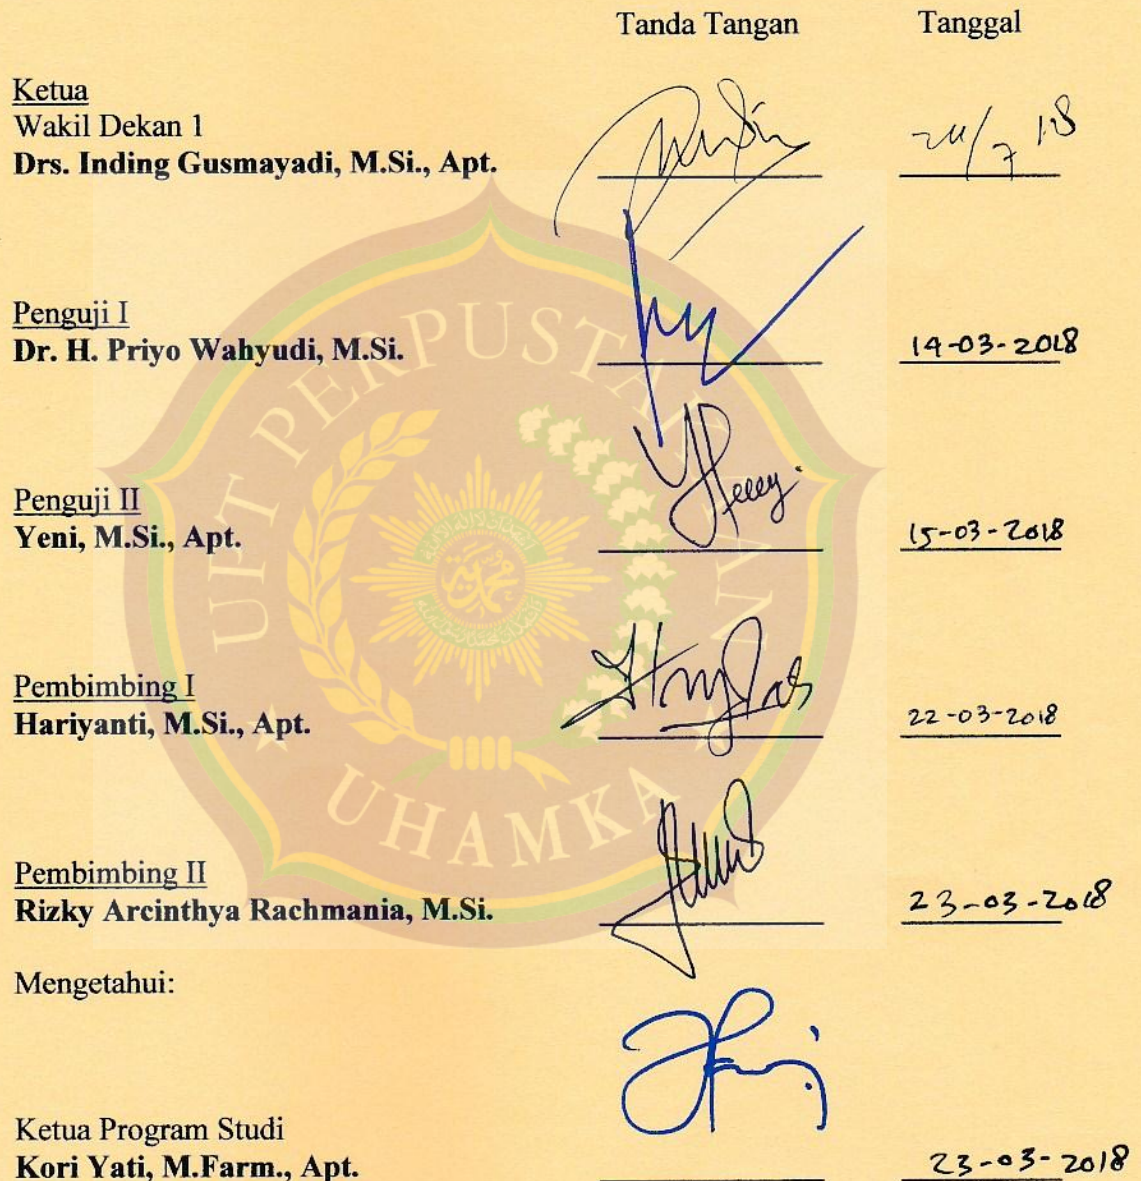 Tanda Tangan Tanggal
Ketua
Wakil Dekan 1
Drs. Inding Gusmayadi, M.Si., Apt.
Penguji I
Dr. H. Priyo Wahyudi, M.Si. 14-03-2018
Penguji II
Yeni, M.Si., Apt. 15-03-2018
Pembimbing I
Hariyanti, M.Si., Apt. 22-03-2018
Pembimbing II
Rizky Arcinthya Rachmania, M.Si. 23-03-2018
Mengetahui:
Ketua Program Studi
Kori Yati, M.Farm., Apt. 23-03-2018
UPT PERPUSTAKAAN
UHAMKA